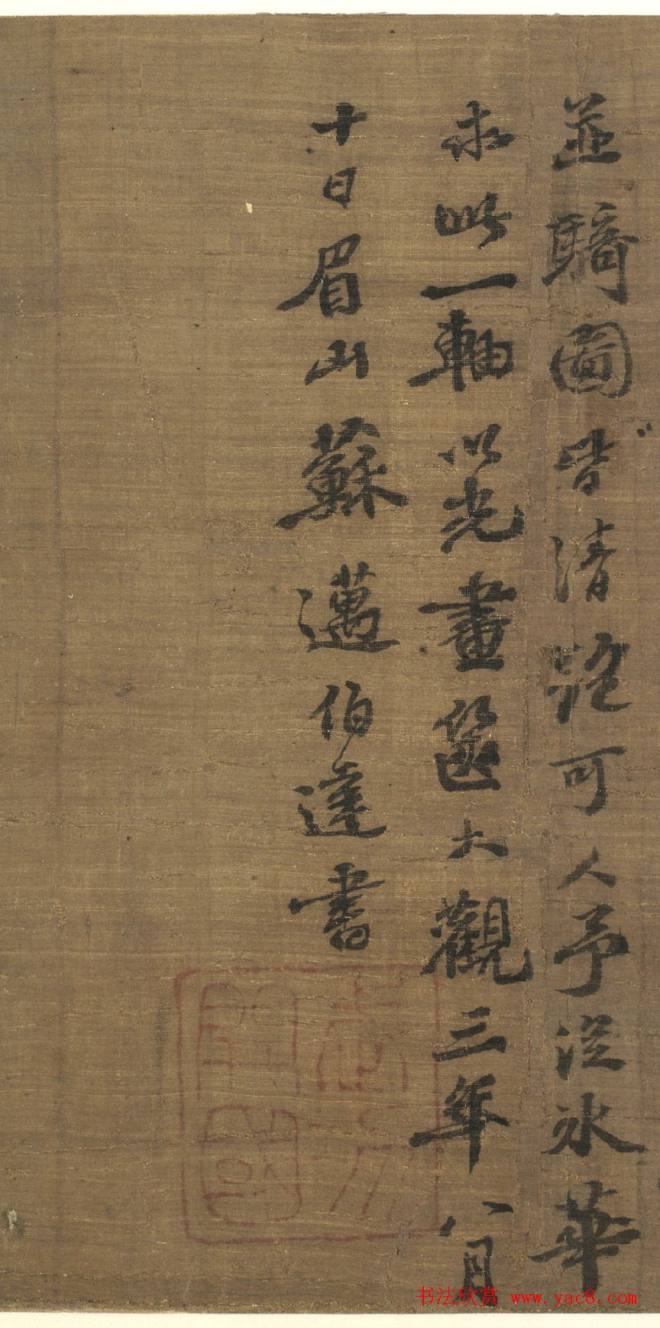 並騎圖皆清絕可人予從冰華
求此一軸以光畫篋大觀三年八月
十日眉山蘇邁伯達書
书法欣赏 www.yac8.com